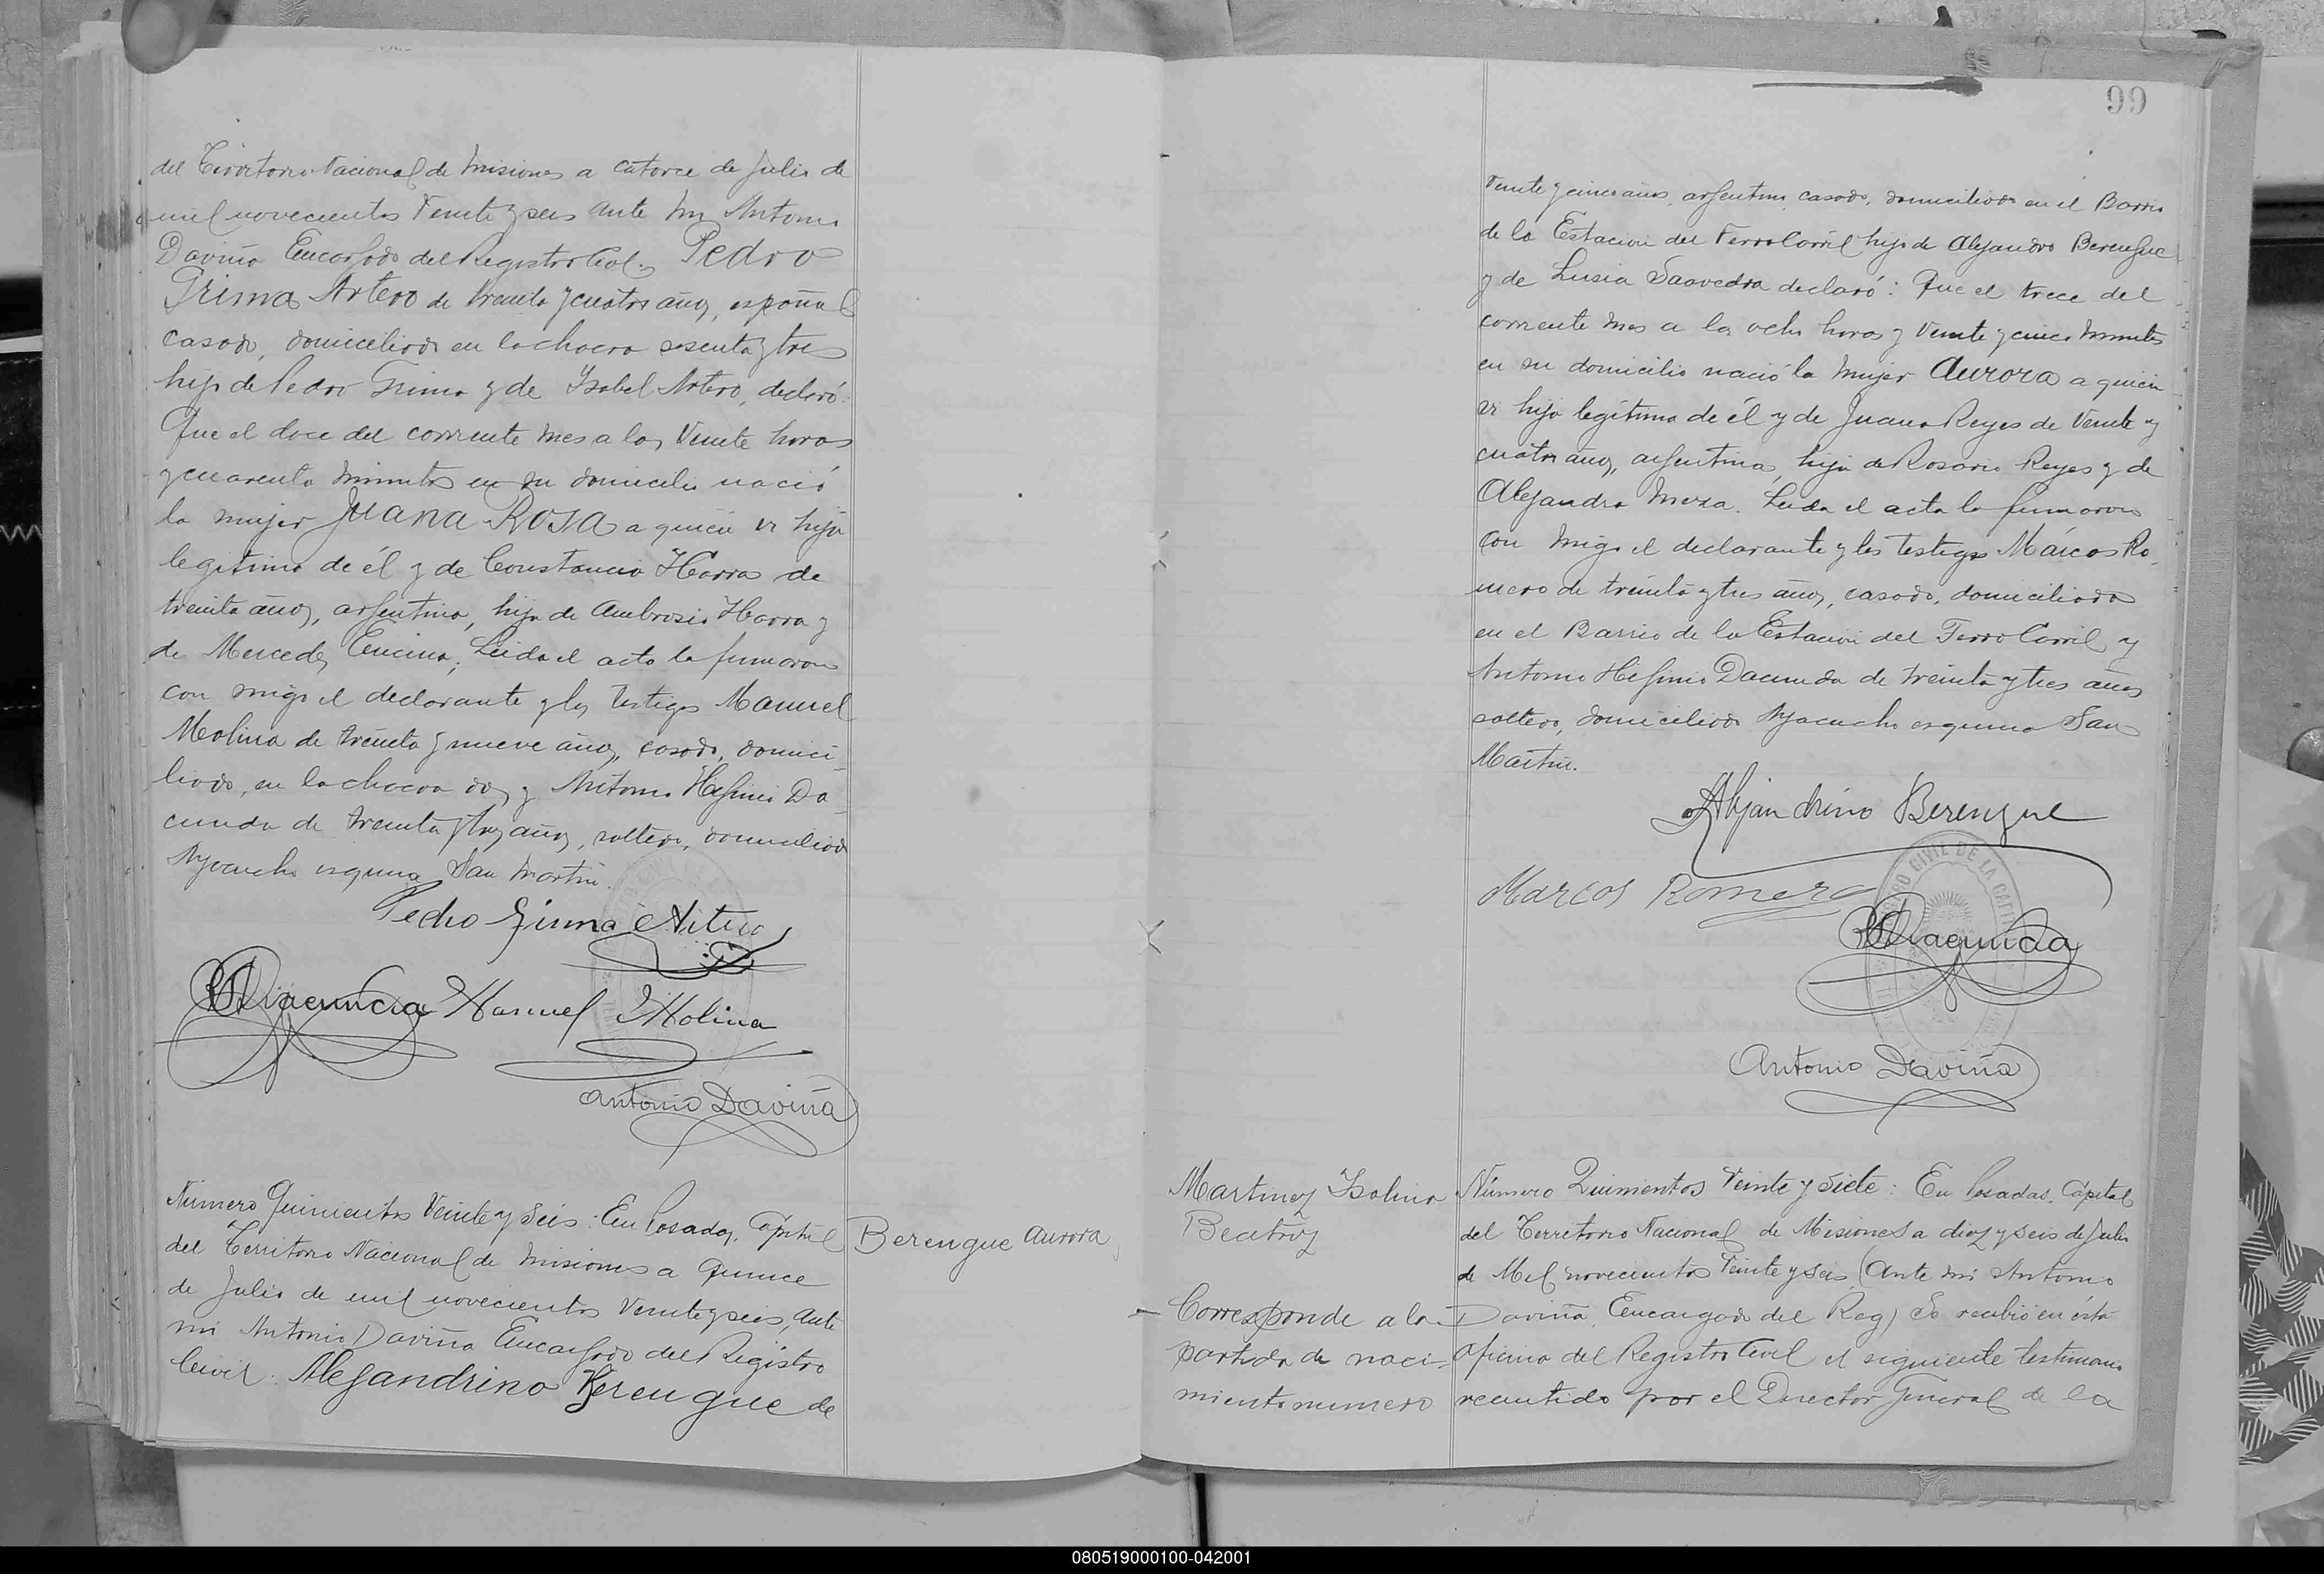 del Territorio Nacional de Misiones a catorce de Julio de
mil novecientos Veinte y seis ante mi Antonio
Daviña Encargado del Registro Civil. Pedro
Grima Artero de treinta y cuatro años, español
casado, domiciliado en la chacra sesenta y tres
hijo de Pedro Grima y de Ysabel Artero, declaró:
Que el doce del corriente mes a las Veinte horas
y cuarenta minutos en su domicilio nació
la mujer JUANA ROSA a quien vi hija
legitima de él y de Constancia Ybarra de
treinta años, argentina, hija de Ambrosio Ybarra y
de Mercedes Encina; Leida el acta la firmaron
con migo el declarante y los testigos Manuel
Molina de treinta y nueve años, casado, domici-
liado, en la chacra dos y Antonio Higinio Da-
cunda de treinta y tres años, soltero, domiciliado
Ayacucho esquina San Martin.
Pedro Grima Artero
Dacunda Manuel Molina
Antonio Daviña
Número Quinientos Veinte y Seis: En Posadas, Capital
del Territorio Nacional de Misiones a quince
de Julio de mil novecientos Veinte y seis, ante
mi Antonio Daviña Encargado del Registro
Civil: Alejandrino Berengue de
Berengue Aurora
99
veinte y cinco años, argentino, casado, domiciliado en el Barrio
de la Estacion del Ferro Carril hijo de Alejandro Berengue
y de Lusia Saavedra declaró: Que el trece del
corriente mes a las ocho horas y Veinte y cinco minutos
en su domicilio nació la mujer Aurora a quien
vi hija legitima de él y de Juana Reyes de Veinte y
cuatro años, argentina, hija de Rosario Reyes y de
Alejandra Meza. Leida el acta la firmaron
con migo el declarante y los testigos Márcos Ro-
mero de treinta y tres años, casado, domiciliado
en el Barrio de la Estacion del Ferro Carril y
Antonio Higinio Dacunda de treinta y tres años
soltero, domiciliado Ayacucho esquina San
Martin.
Alejandrino Berengue
Marcos Romero
Dacunda
Antonio Daviña
REGISTRO CIVIL DE LA CAPITAL
Martinez Ysolina
Beatriz
Corresponde a la
partida de naci-
miento numero
Número Quinientos Veinte y Siete: En Posadas, Capital
del Territorio Nacional de Misiones a diez y seis de Julio
de Mil novecientos Veinte y seis (Ante mi Antonio
Daviña, Encargado del Reg) Se recibió en ésta
oficina del Registro Civil el siguiente testimonio
remitido por el Director General de la
080519000100-042001